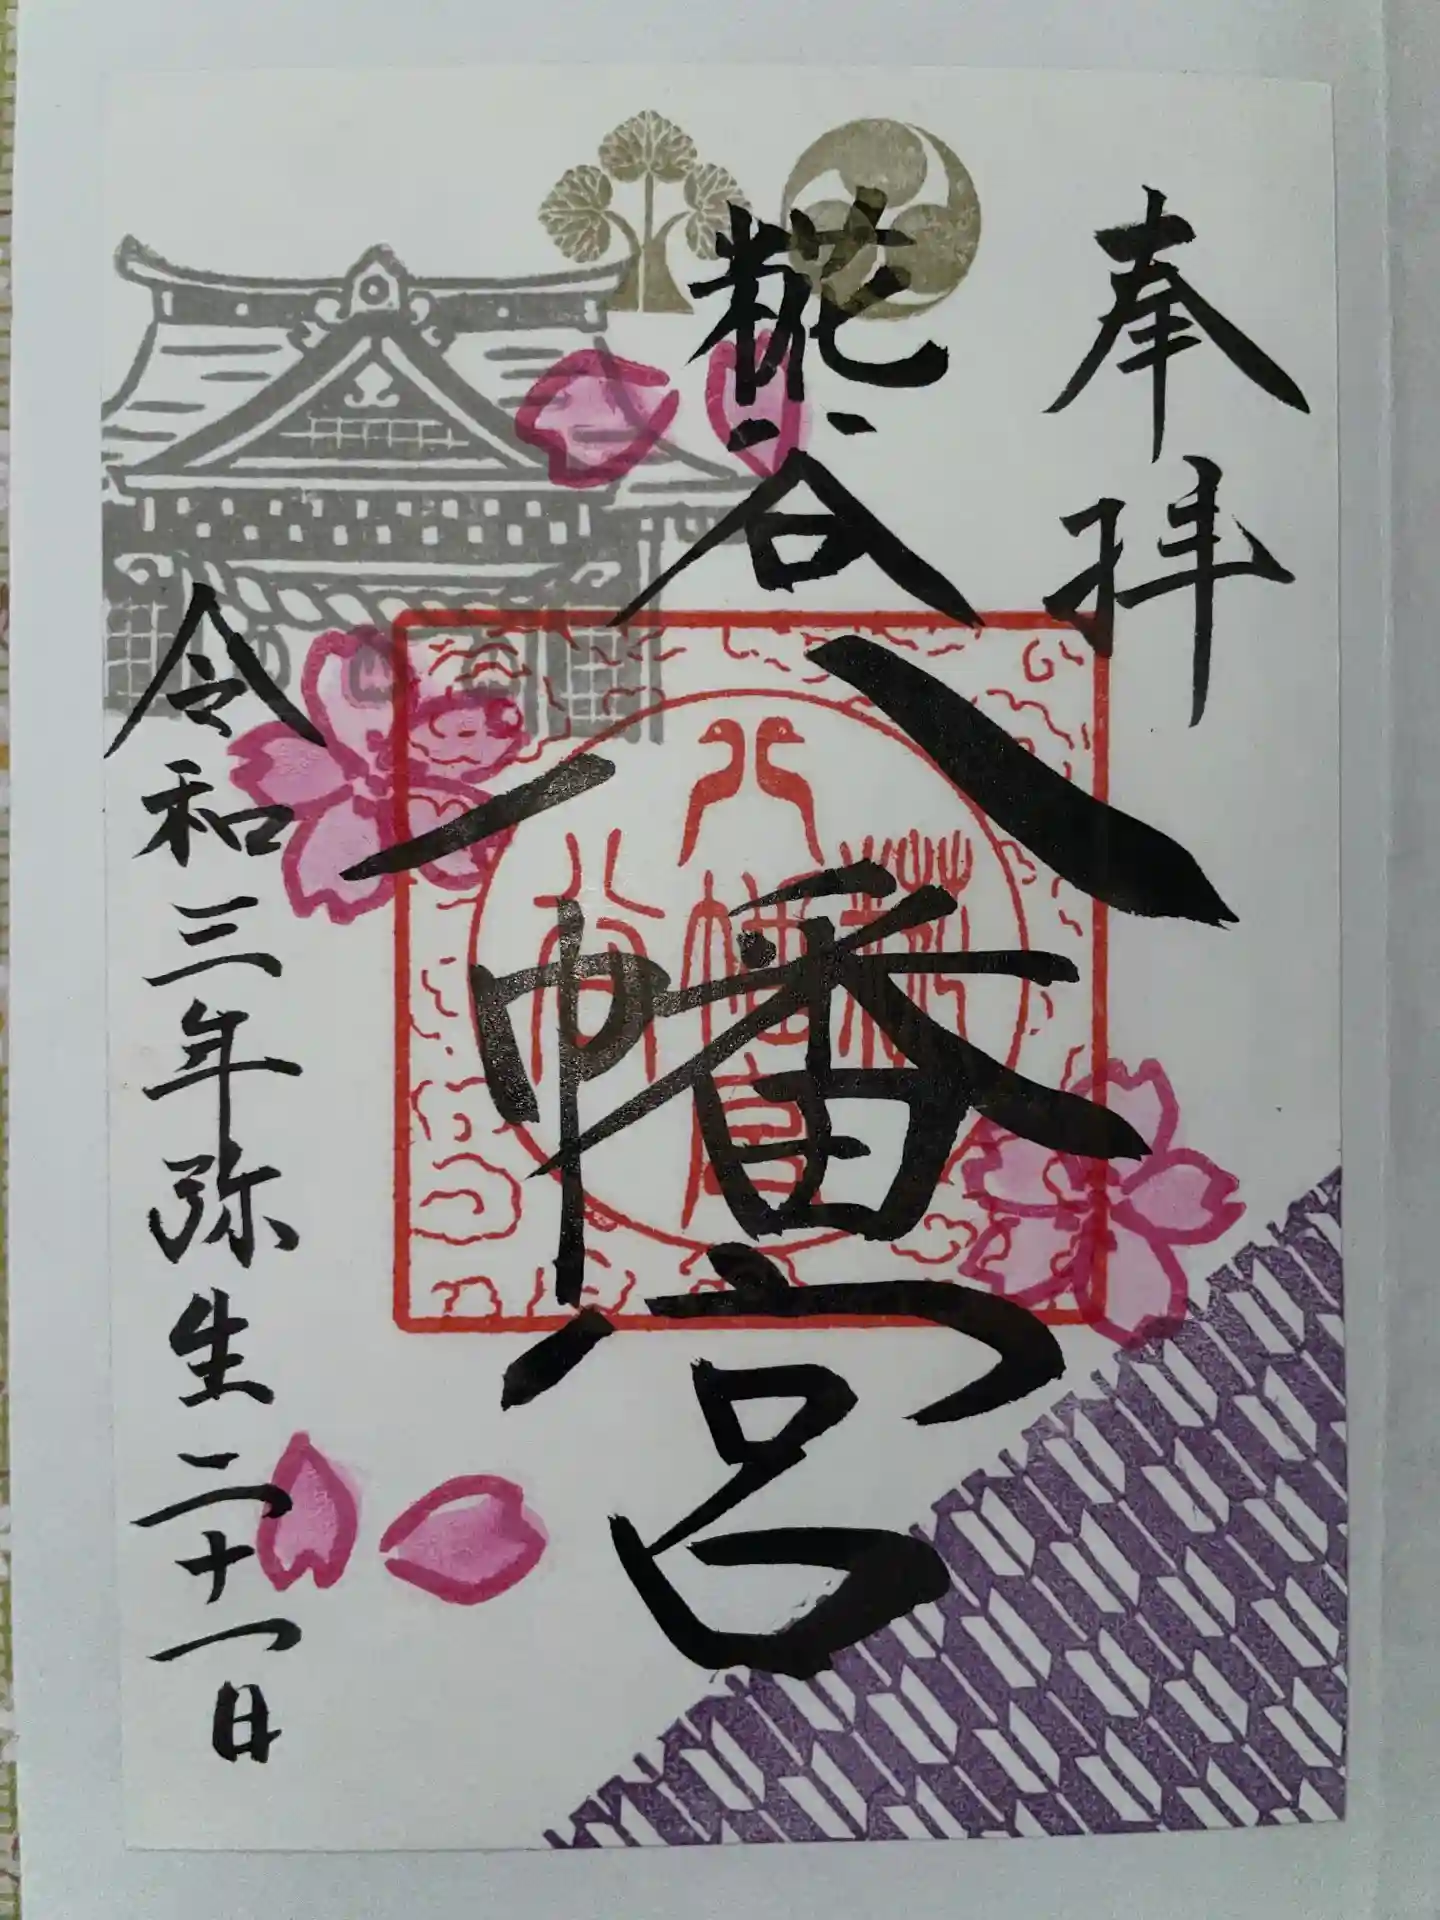 奉拝
糀谷八幡宮
令和三年弥生二十一日
糀谷
八幡宮